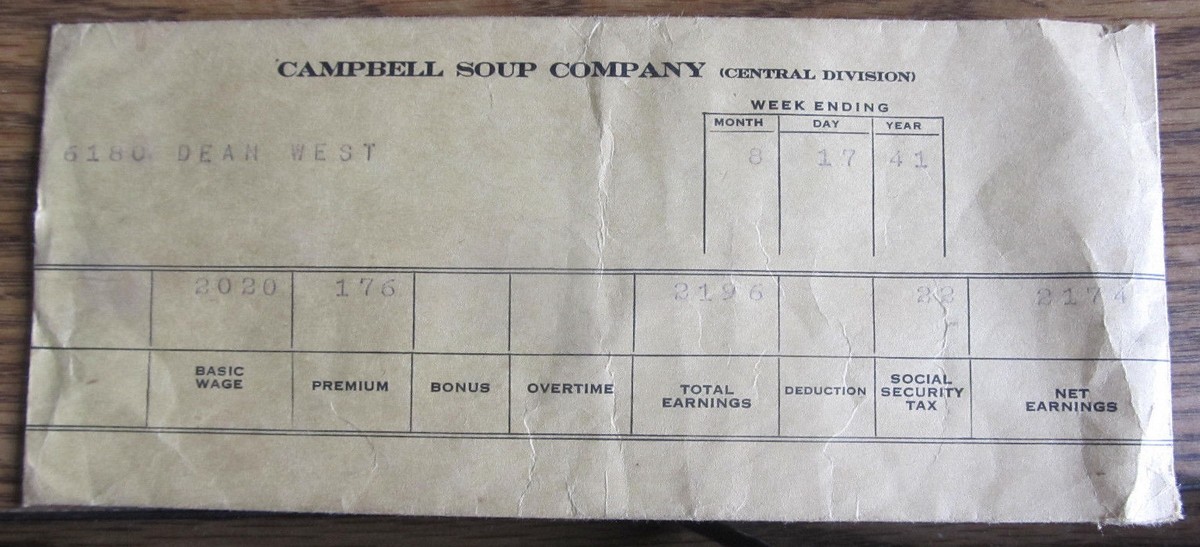 CAMPBELL SOUP COMPANY (CENTRAL DIVISION)
WEEK ENDING
MONTH DAY YEAR
6180 DEAN WEST
8 17 41
2020 176 2196 22 2174
BASIC WAGE PREMIUM BONUS OVERTIME TOTAL EARNINGS DEDUCTION SOCIAL SECURITY TAX NET EARNINGS